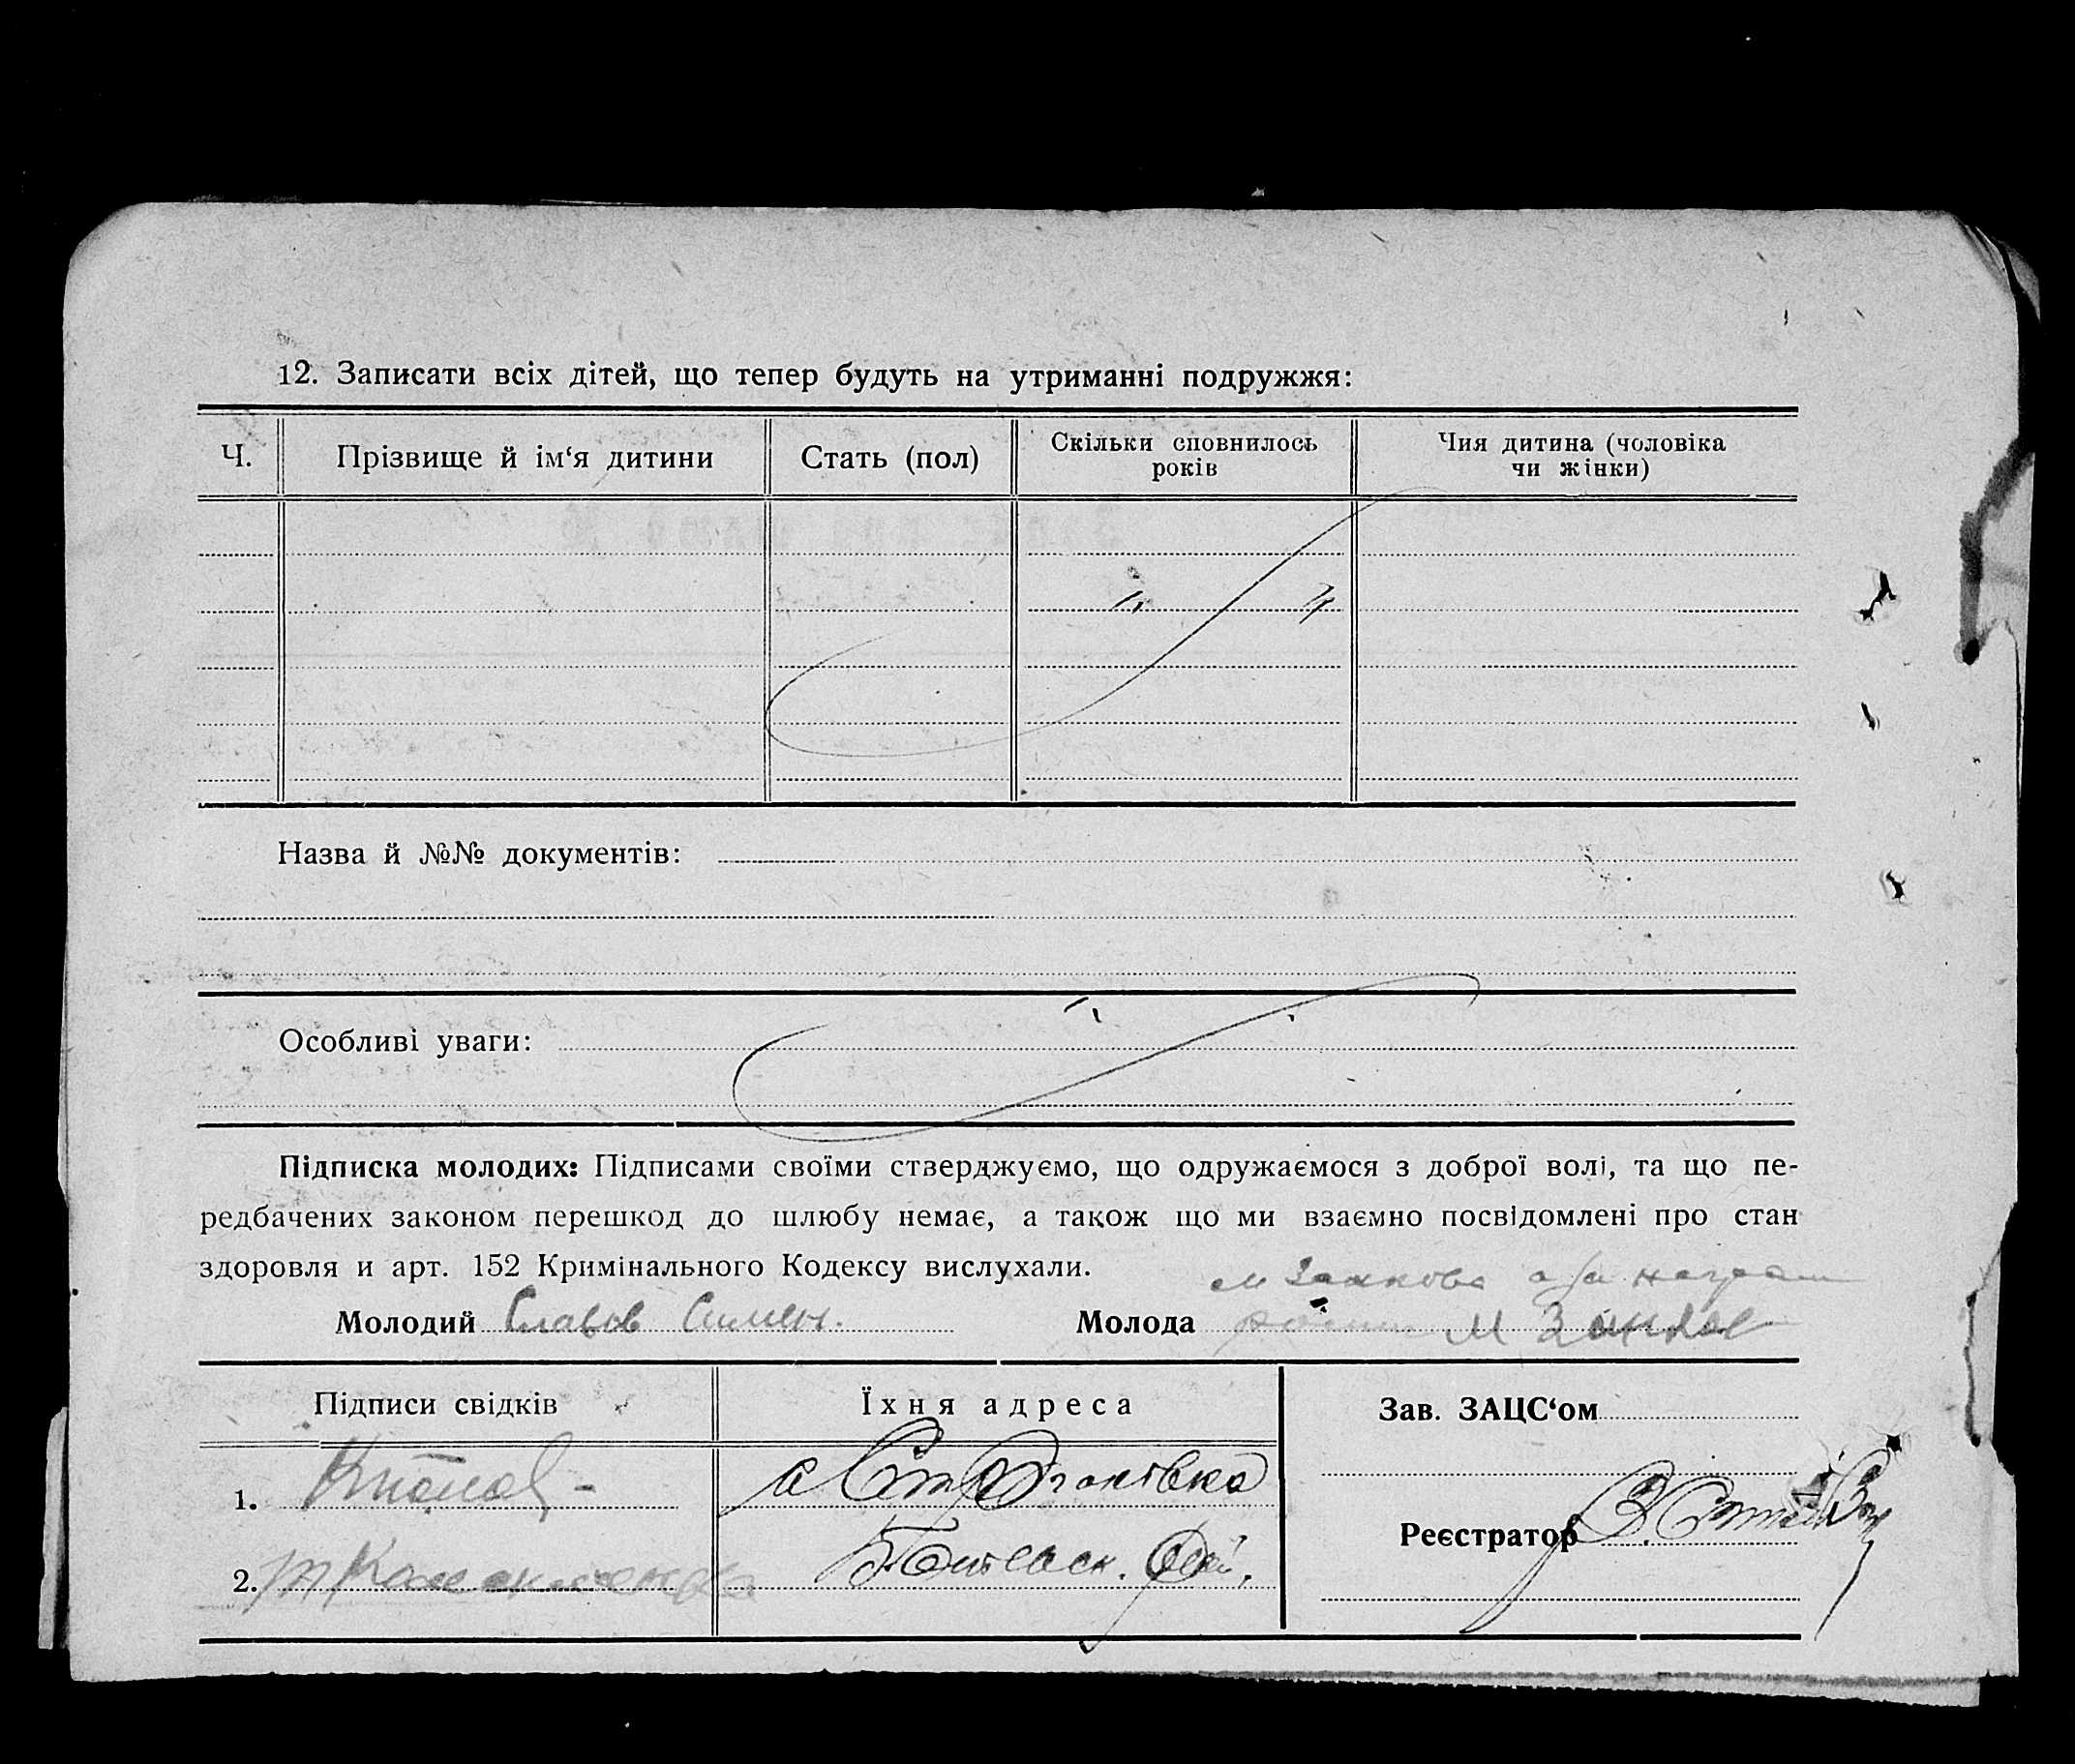 12. Записати всіх дітей, що тепер будуть на утриманні подружжя:
Ч.
Прізвище й ім‘я дитини
Стать (пол)
Скільки сповнилось
років
Чия дитина (чоловіка
чи жінки)
Назва й №№ документів:
Особливі уваги:
Підписка молодих: Підписами своїми стверджуємо, що одружаємося з доброї волі, та що пе-
редбачених законом перешкод до шлюбу немає, а також що ми взаємно посвідомлені про стан
здоровля и арт. 152 Кримінального Кодексу вислухали.
Молодий Славов Симен.
Молода М
Підписи свідків
Їхня адреса
Зав. ЗАЦС‘ом
1.
2.
Реєстратор